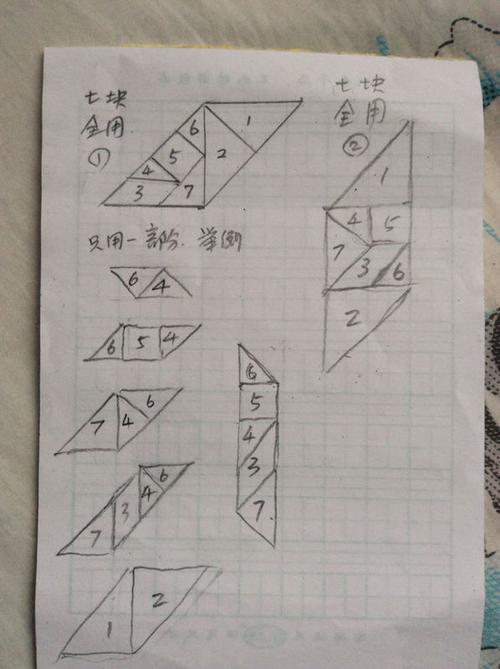 七块
全用
①
6
1
5
2
4
3
7
只用一部分.举例
6 4
6 5 4
7 4 6
7 3 4 6
1 2
6
5
4
3
7
七块
全用
②
1
4 5
7 3 6
2